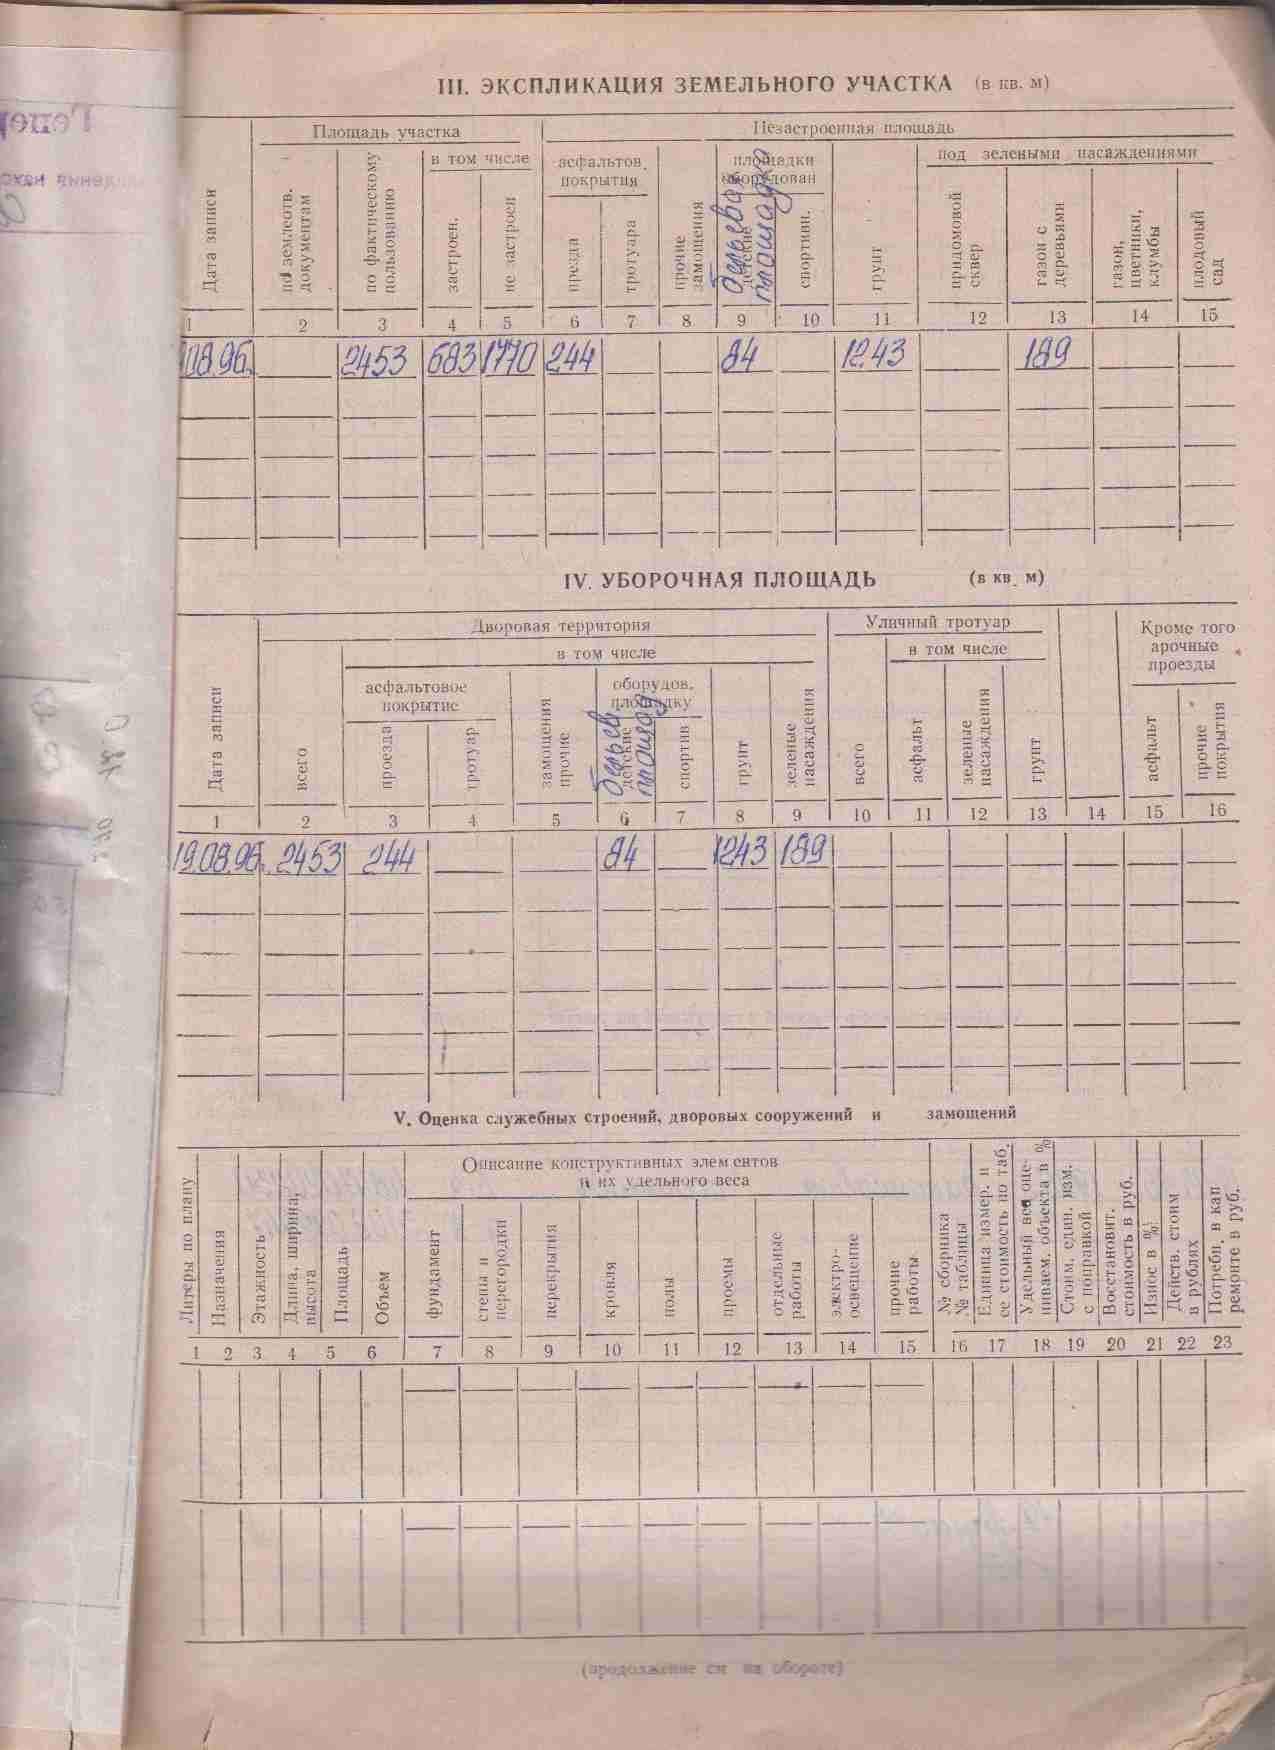 III. ЭКСПЛИКАЦИЯ ЗЕМЕЛЬНОГО УЧАСТКА (в кв. м)
Площадь участка
Незастроенная площадь
в том числе
асфальтов. покрытия
площадки оборудован
под зелеными насаждениями
Дата записи
по землеотв. документам
по фактическому пользованию
застроен.
не застроен
проезда
тротуара
прочие замощения
детские
бельевая площадка
спортивн.
грунт
придомовой сквер
газон с деревьями
газон, цветники, клумбы
плодовый сад
1 2 3 4 5 6 7 8 9 10 11 12 13 14 15
08.96. 2453 683 1770 244 84 1243 199
IV. УБОРОЧНАЯ ПЛОЩАДЬ (в кв. м)
Дворовая территория
Уличный тротуар
Кроме того арочные проезды
в том числе
в том числе
асфальтовое покрытие
оборудов. площадку
Дата записи
всего
проезда
тротуар
замощения прочие
детские
бельев площад
спортив
грунт
зеленые насаждения
всего
асфальт
зеленые насаждения
грунт
асфальт
прочие покрытия
1 2 3 4 5 6 7 8 9 10 11 12 13 14 15 16
19.08.96. 2453 244 84 1243 199
V. Оценка служебных строений, дворовых сооружений и замощений
Описание конструктивных элементов
и их удельного веса
Литеры по плану
Назначения
Этажность
Длина, ширина, высота
Площадь
Объем
фундамент
стены и перегородки
перекрытия
кровля
полы
проемы
отдельные работы
электро-
освещение
прочие работы
№ сборника
№ таблицы
Единица измер. и
ее стоимость по таб.
Удельный вес оце-
ниваем. объекта в %
Стоим. един. изм.
с поправкой
Восстановит.
стоимость в руб.
Износ в %
Действ. стоим
в рублях
Потребн. в кап
ремонте в руб.
1 2 3 4 5 6 7 8 9 10 11 12 13 14 15 16 17 18 19 20 21 22 23
(продолжение см на обороте)